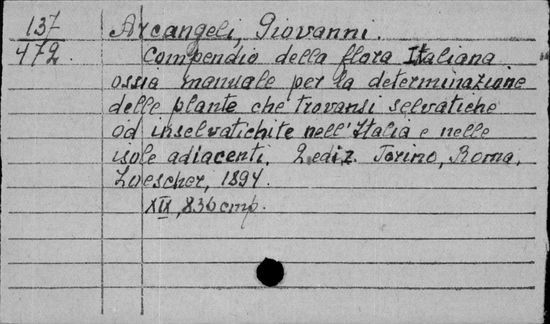 137 Arcangeli, Giovanni.
472. Compendio della flora Italiana
ossia manuale per la determinazione
delle plante che trovansi selvatiche
od inselvatichite nell'Italia e nelle
isole adiacenti. 2 ediz. Torino, Roma,
Loescher, 1894.
XIX, 836 стр.